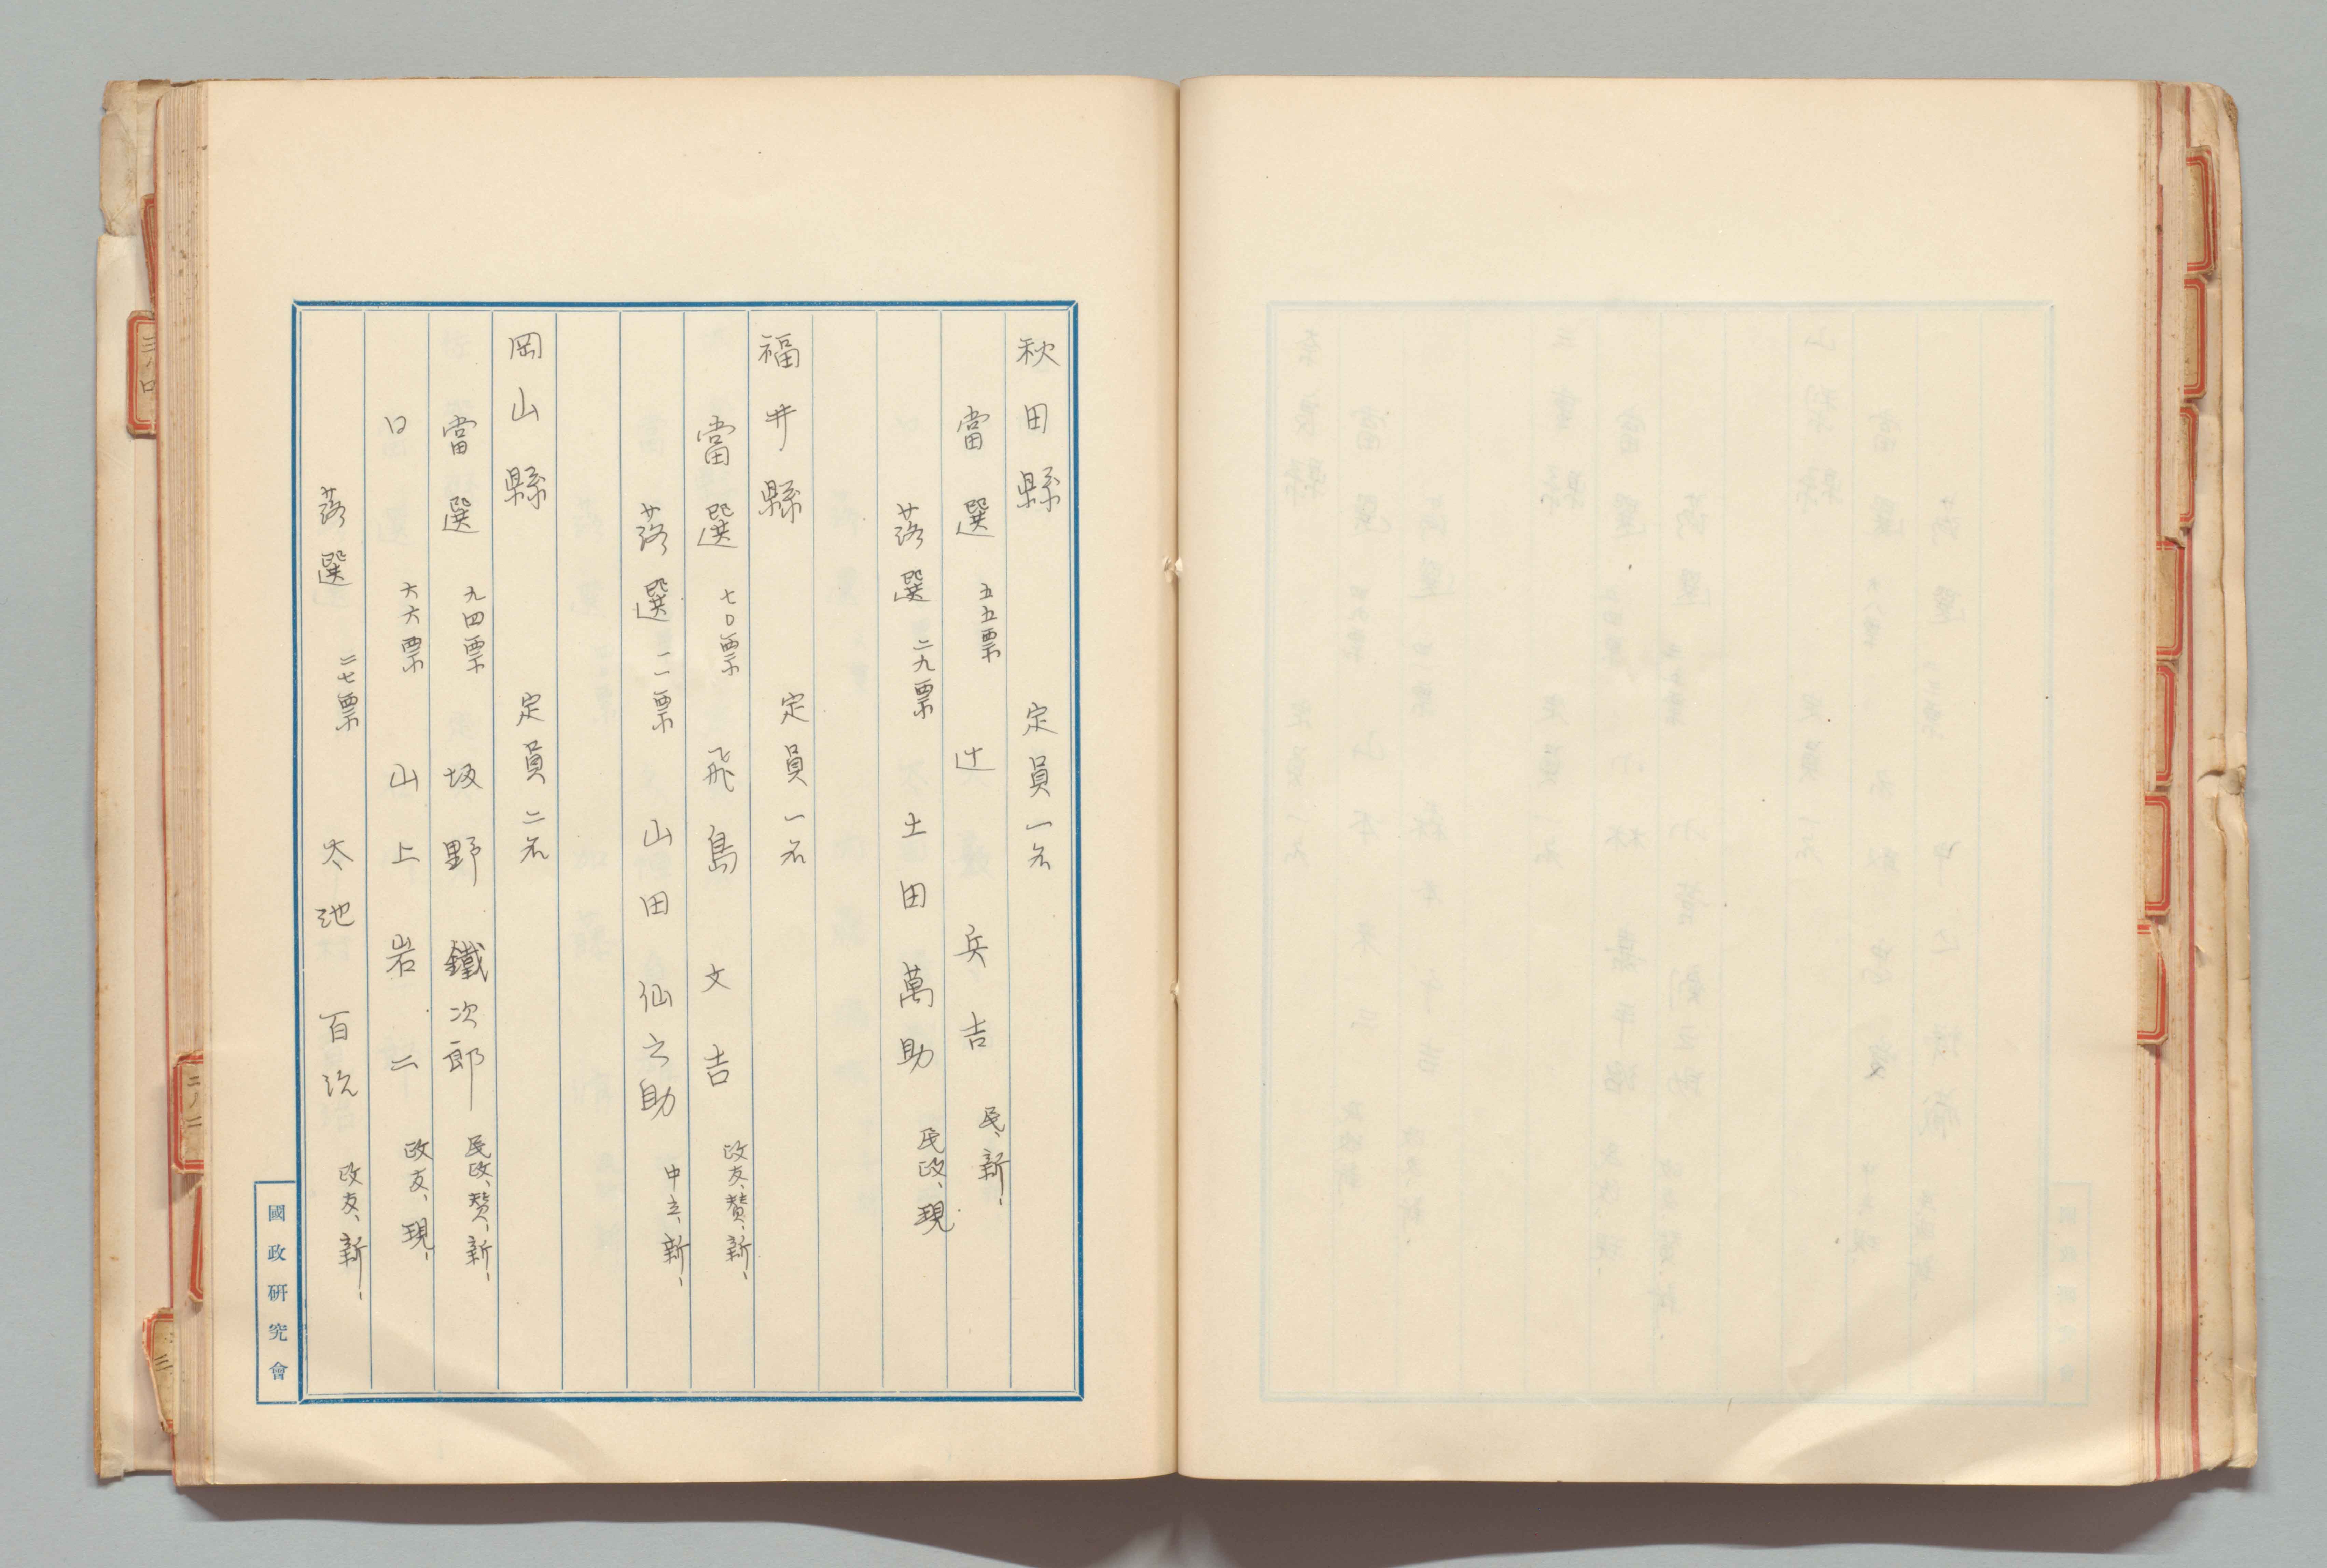 秋田縣 定員一名
當選 五五票 辻兵吉 民、新、
落選 二九票 土田萬助 民政、現
福井縣 定員一名
當選 七〇票 飛島文吉 政友、賛、新、
落選 一一票 山田仙之助 中立、新、
岡山縣 定員二名
當選 九四票 坂野鐵次郎 民政、賛、新、
〃 六六票 山上岩二 政友、現、
落選 二七票 太池百次 政友、新、
國政研究會
三ノ口
二ノ二
三